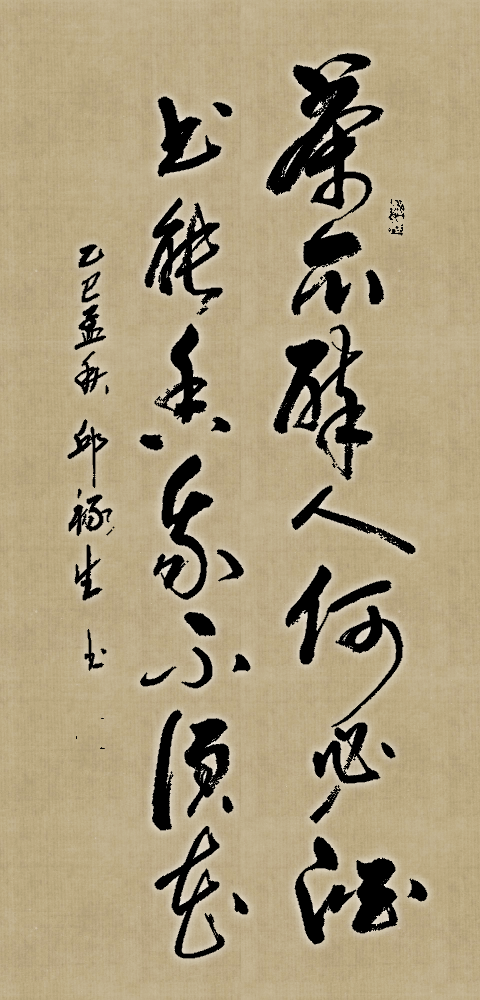 茶亦醉人何必酒
书能香我不须花
乙巳孟秋 邱禄生 书